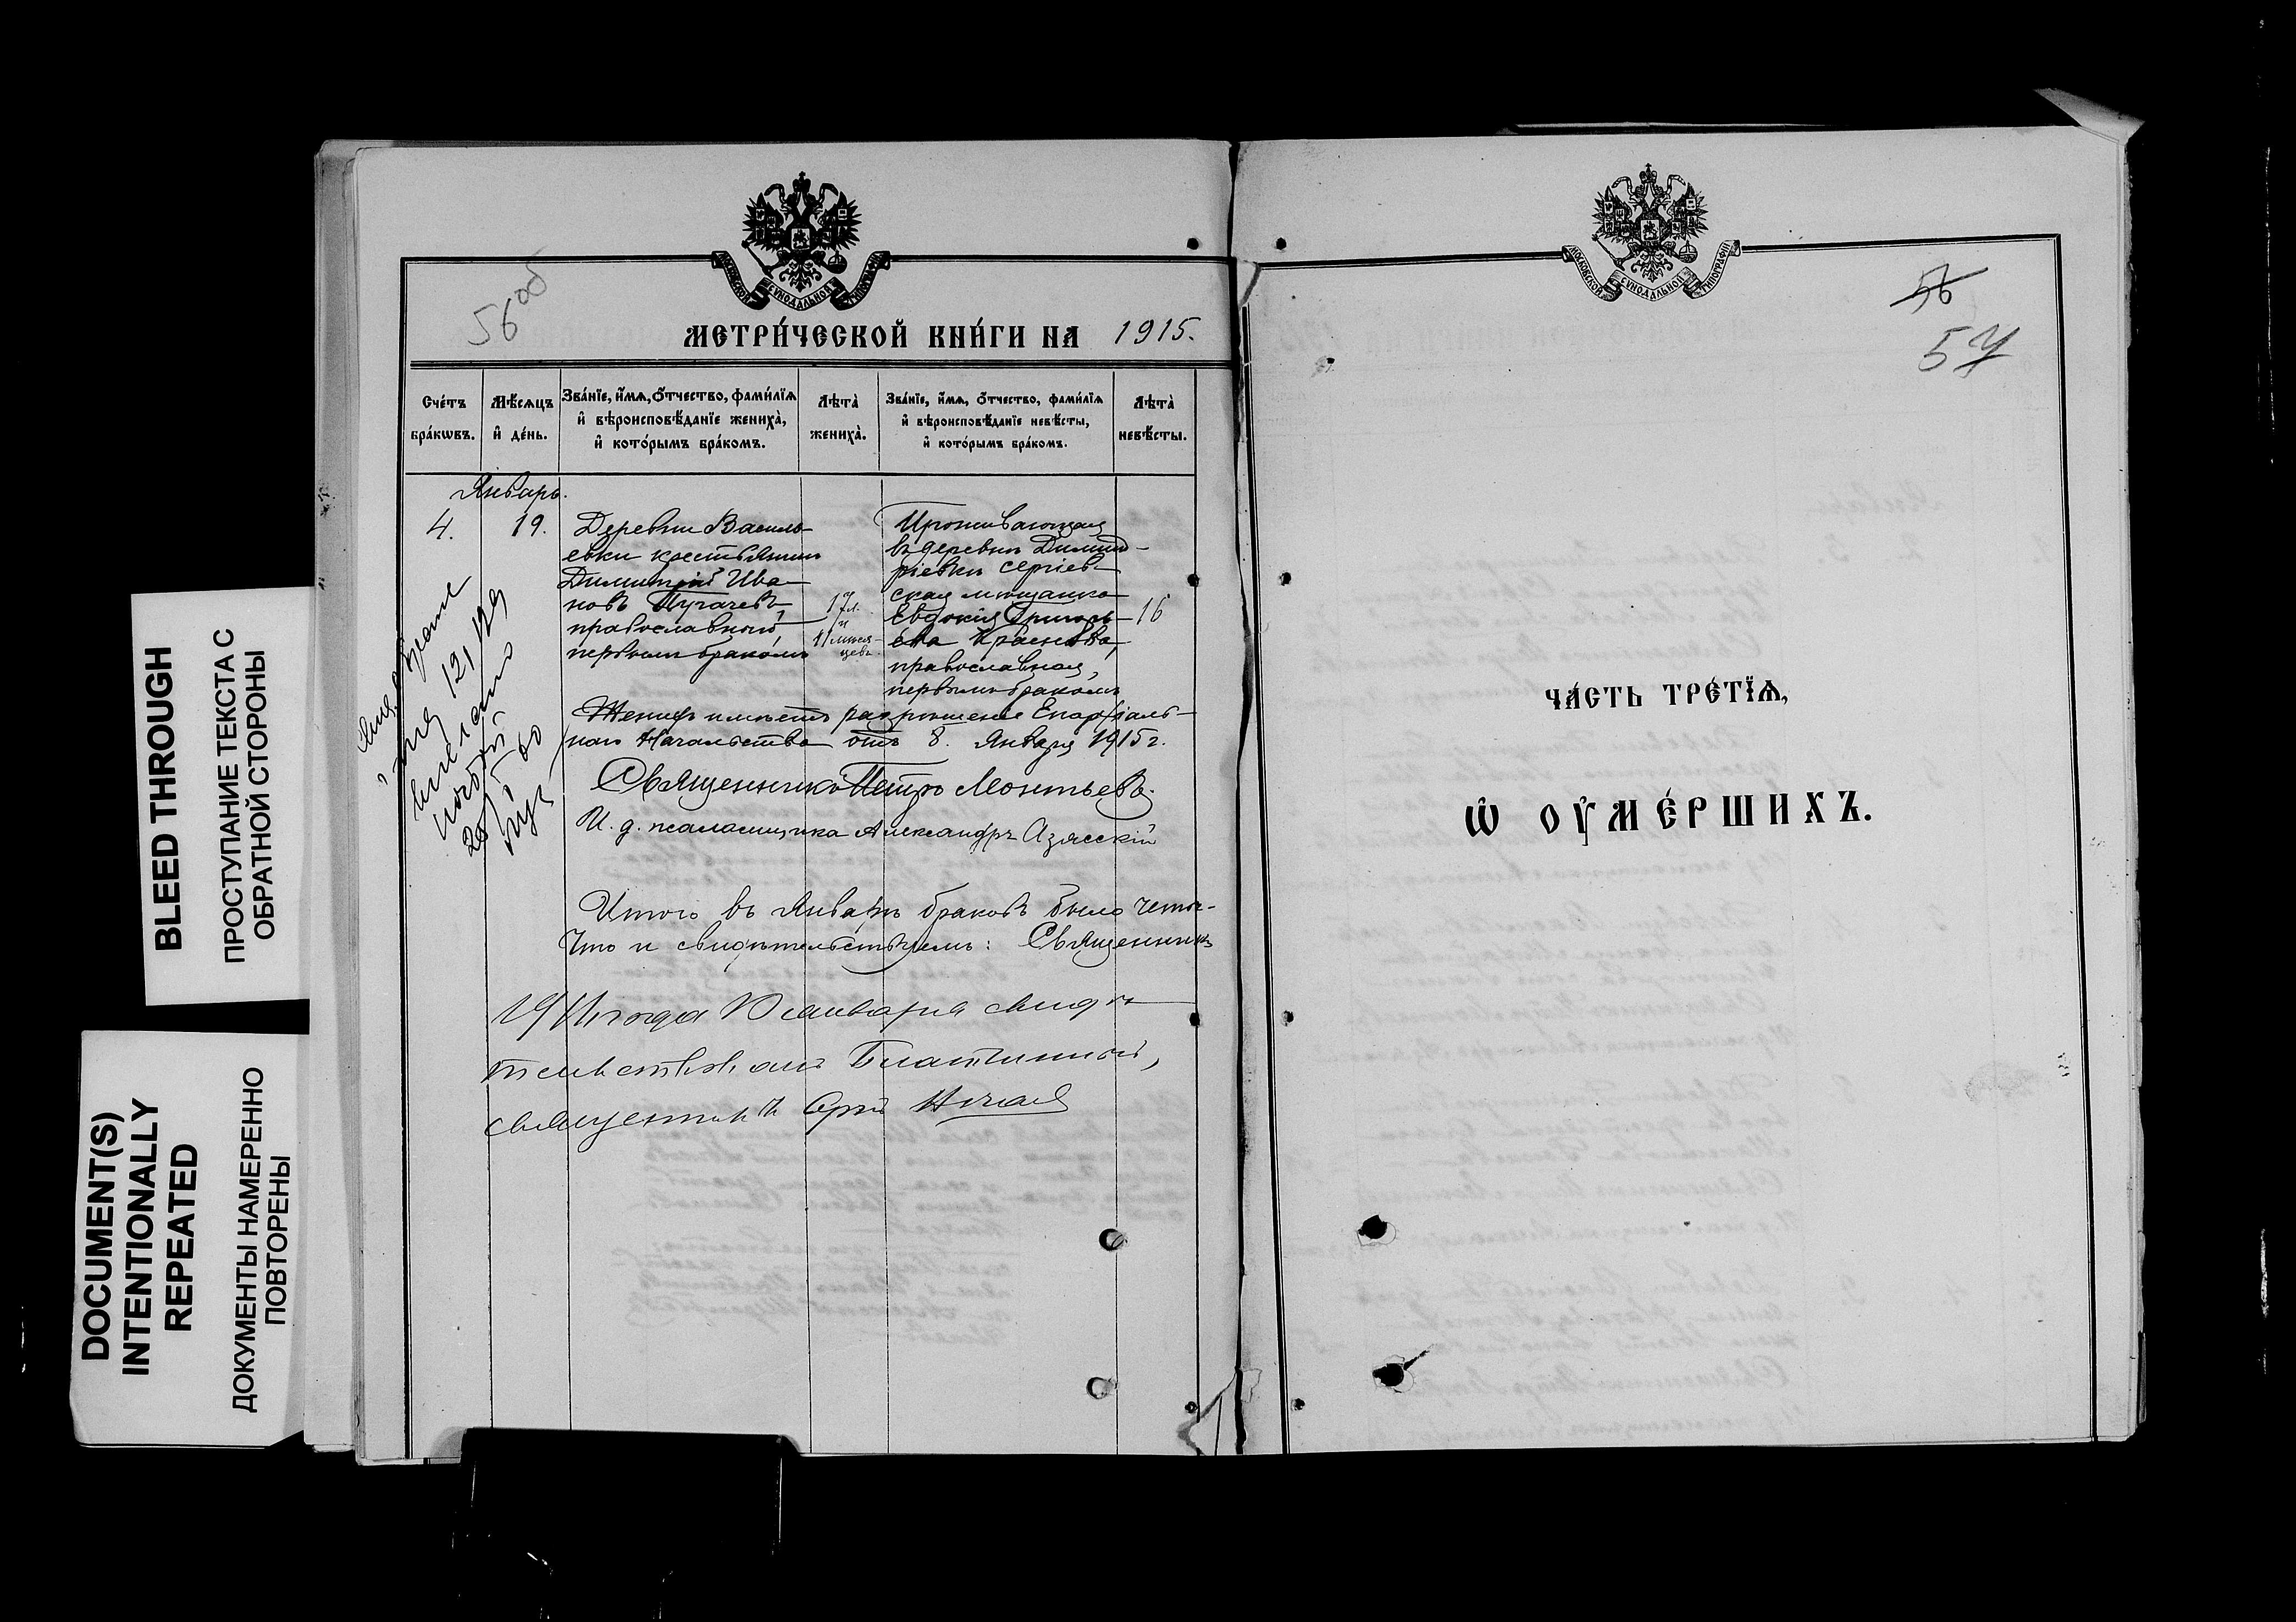 BLEED THROUGH
ПРОСТУПАНИЕ ТЕКСТА С
ОБРАТНОЙ СТОРОНЫ
DOCUMENT(S)
INTENTIONALLY
REPEATED
ДОКУМЕНТЫ НАМЕРЕННО
ПОВТОРЕНЫ
МОСКОВСКОЙ СѴНОДАЛЬНОЙ ТИПОГРАФІИ
56 об
МЕТРИ́ЧЕСКОЙ КНИ́ГИ НА 1915.
Сче́тъ
бра́кѡвъ.
Мѣ́сяцъ
и҆ де́нь.
Зва́нїе, и҆́мѧ, ѻ҆́тчество, фами́лїѧ
и҆ вѣроисповѣ́данїе жениха̀,
и҆ кото́рымъ бра́комъ.
Лѣта̀
жениха̀.
Зва́нїе, и҆́мѧ, ѻ҆́тчество, фами́лїѧ
и҆ вѣроисповѣ́данїе невѣ́сты,
и҆ кото́рымъ бра́комъ.
Лѣта̀
невѣ́сты.
Январь.
4.
19.
Деревни Василь-
евки крестьянинъ
Димитрій Ива-
новъ Пугачевъ,
православный,
первымъ бракомъ
17 л.
и
11 меся-
цевъ.
Проживающая
въ деревнѣ Димит-
ріевкѣ Сергіев-
ская мѣщанка
Евдокія Григорь-
ева Краснова,
православная,
первымъ бракомъ
16
Женихъ имѣетъ разрѣшеніе Епархіаль-
наго Начальства отъ 8. Января 1915 г.
Священникъ Петръ Леонтьевъ.
И. д. псаломщика Александръ Азясскій
Итого въ Январѣ браковъ было четы-
Что и свидѣтельствуемъ: Священникъ
года января свидѣ-
тельствовалъ Благочинный,
священникъ
МОСКОВСКОЙ СѴНОДАЛЬНОЙ ТИПОГРАФІИ
56
57
ЧА́СТЬ ТРЕ́ТЇѦ,
Ѡ҆ ОУ҆МЕ́РШИХЪ.